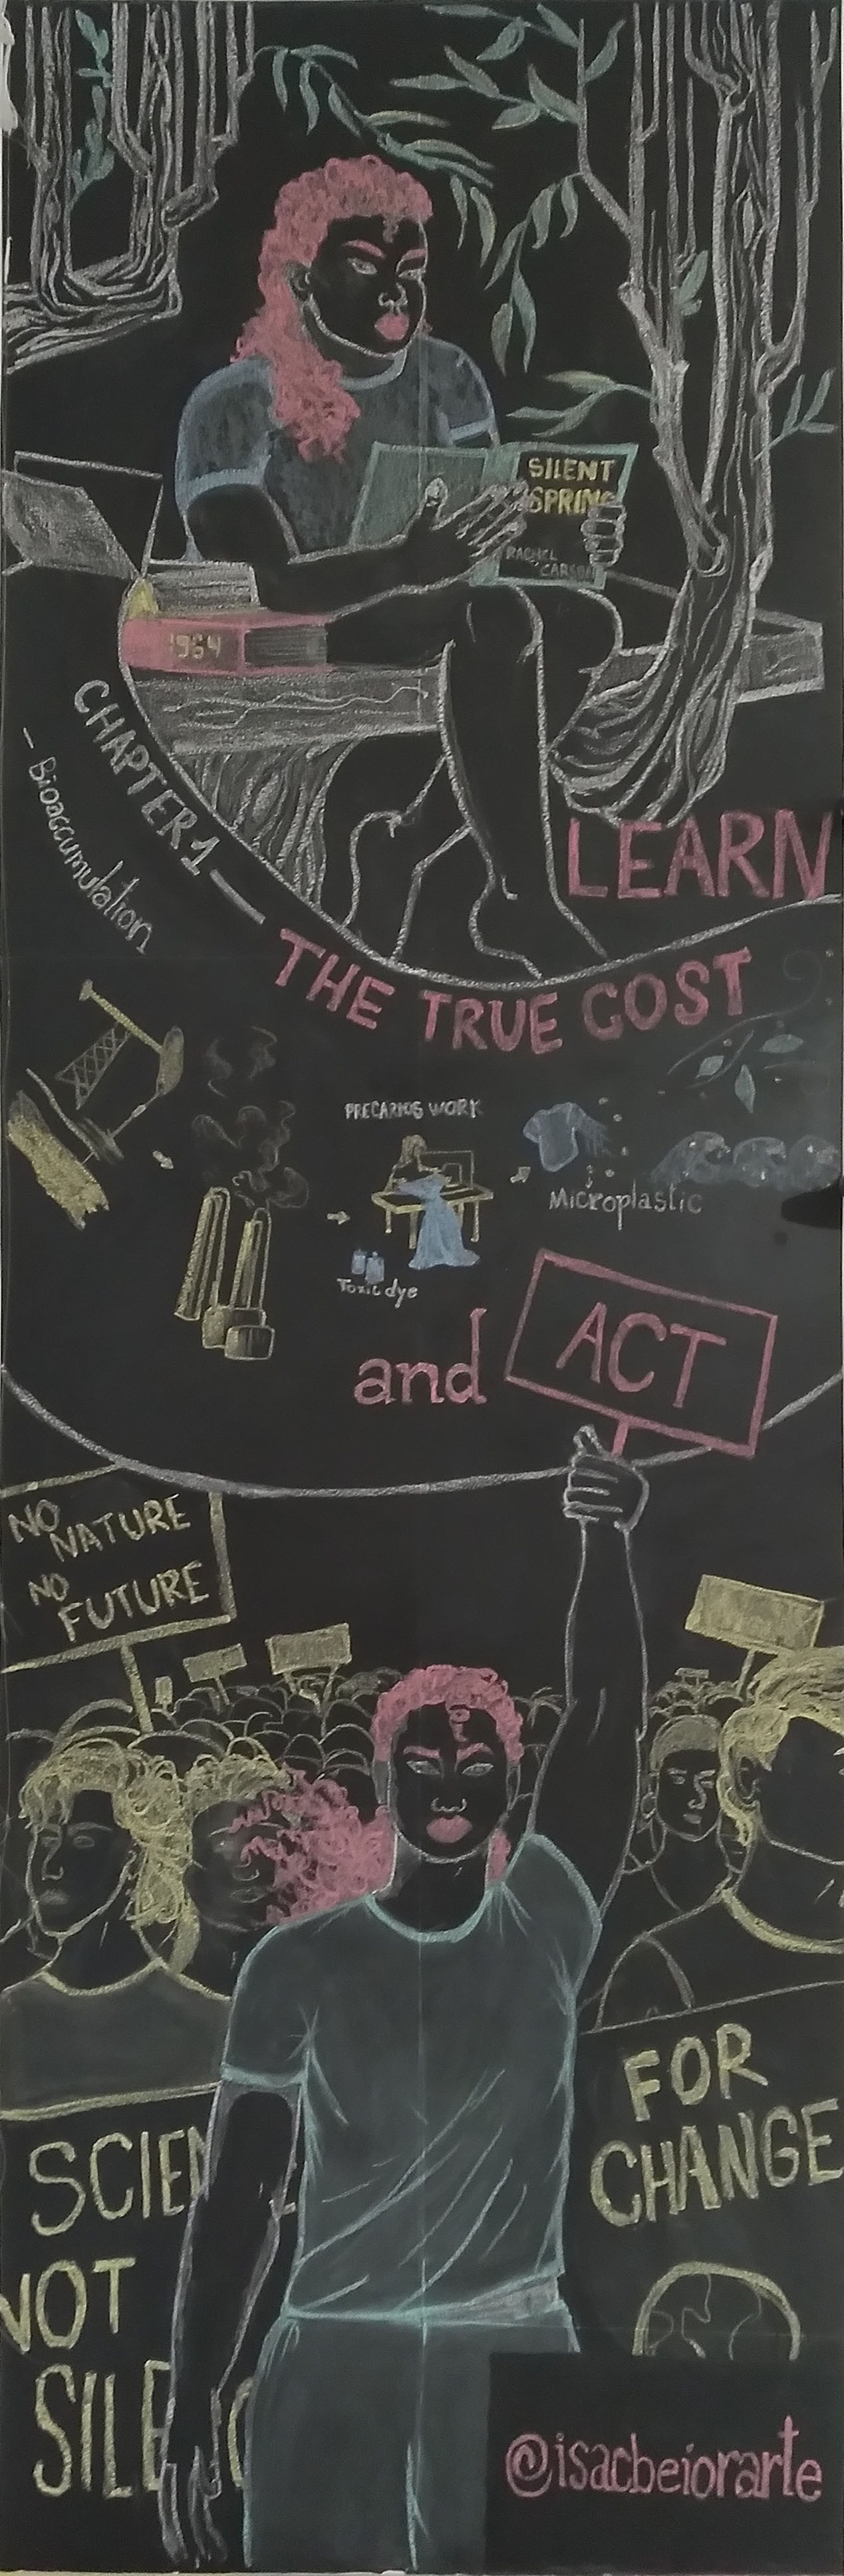 SILENT
SPRING
RACHEL
CARSON
1964
CHAPTER 1 —
- Bioaccumulation
LEARN
THE TRUE COST
PRECARIOS WORK
Microplastic
Toxic dye
and
ACT
NO
NATURE
NO
FUTURE
FOR
CHANGE
SCIEN
NOT
SILE
@isacbeiorarte